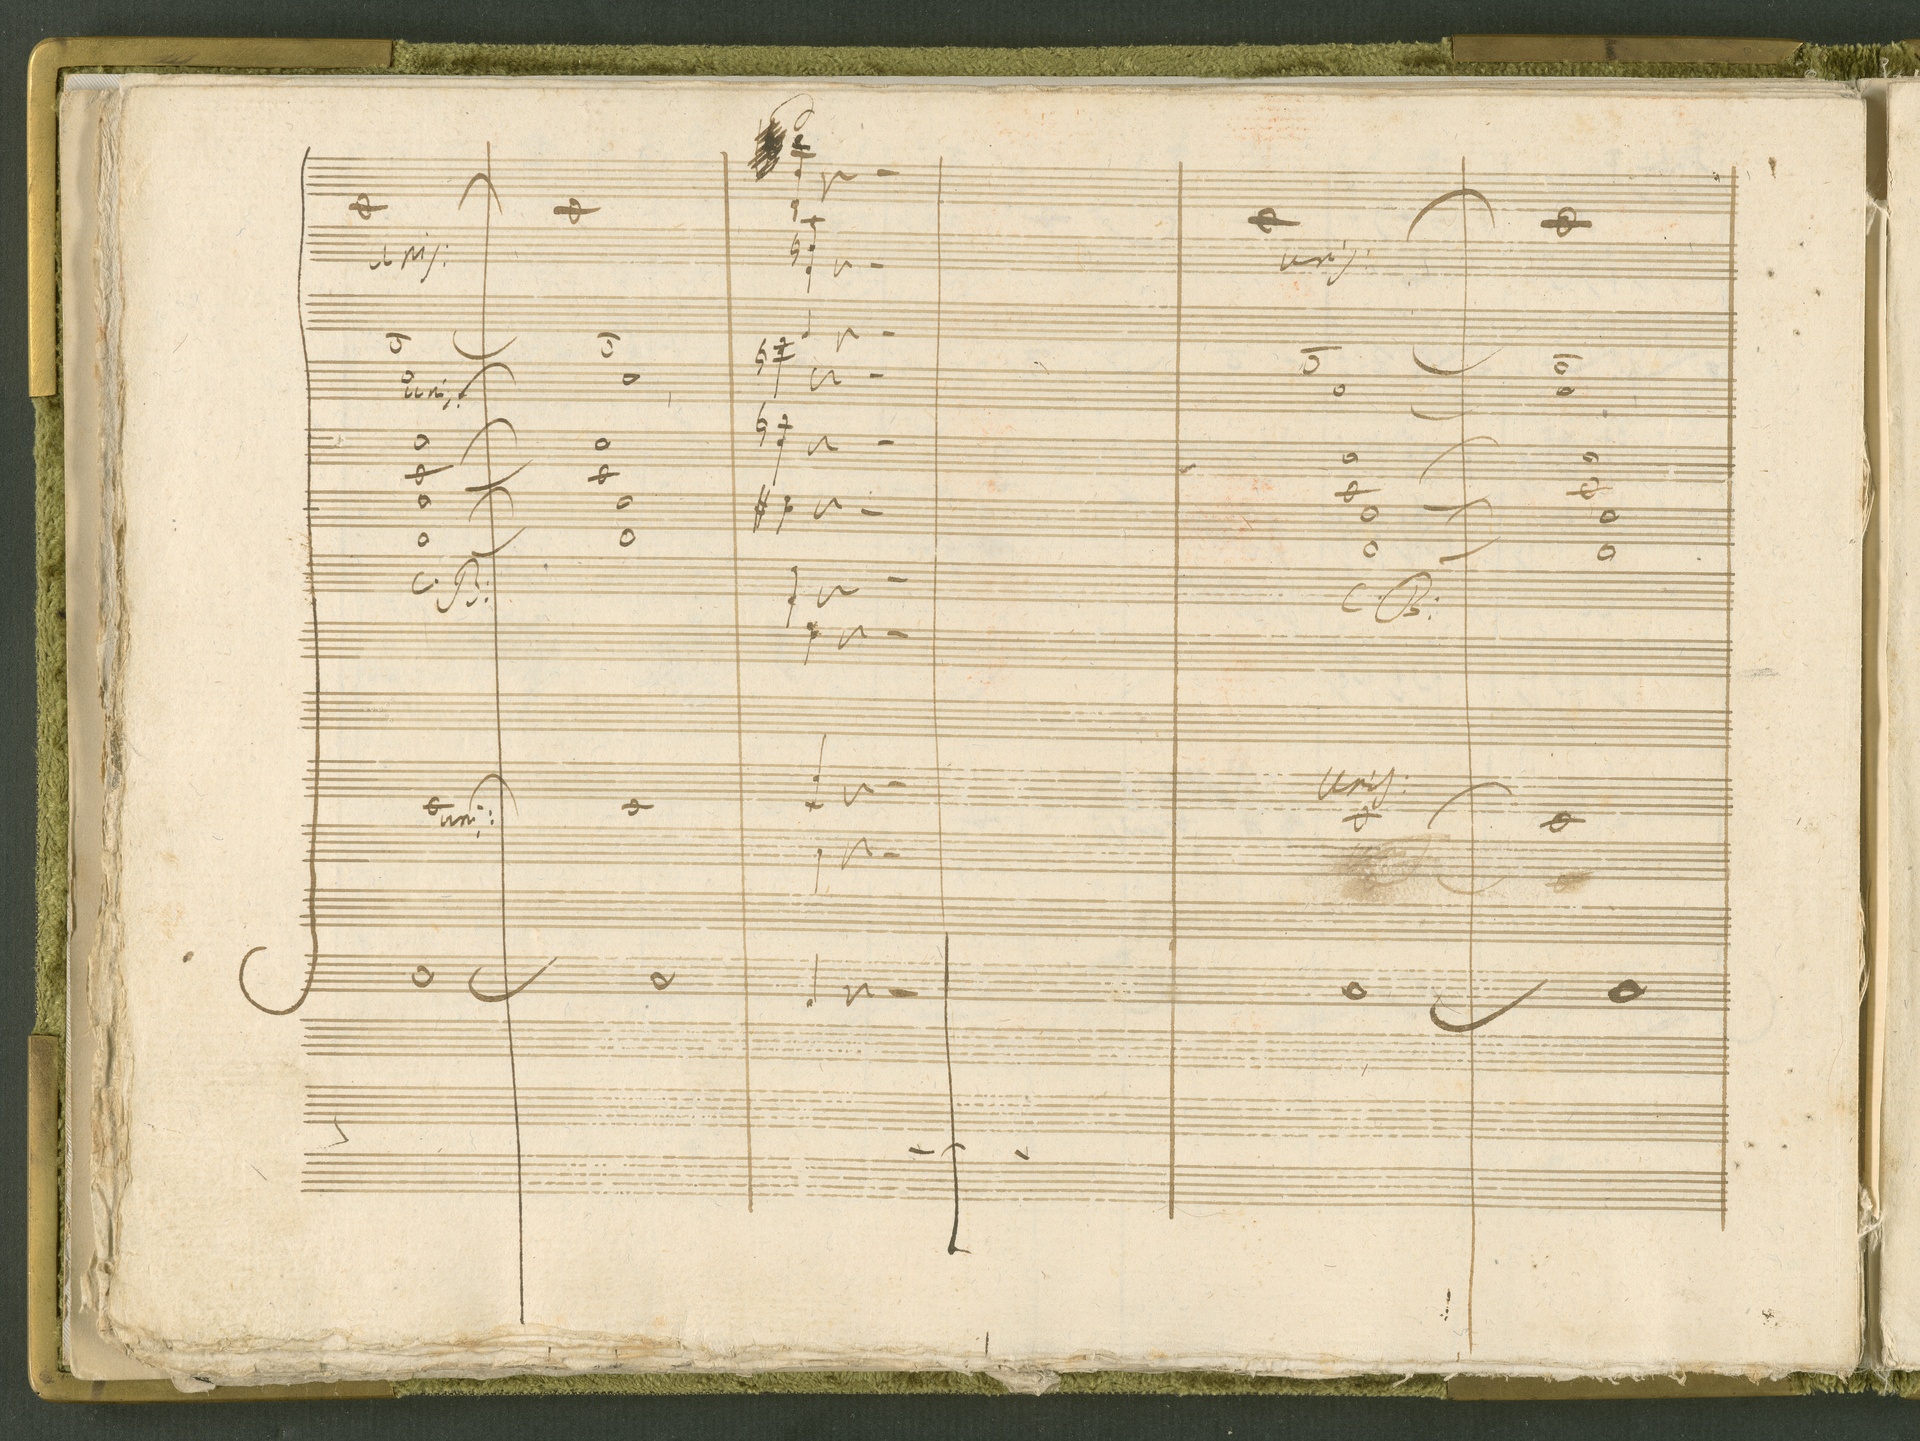 unis:
unis:
unis:
C. B:
C. B:
Unis:
unis: